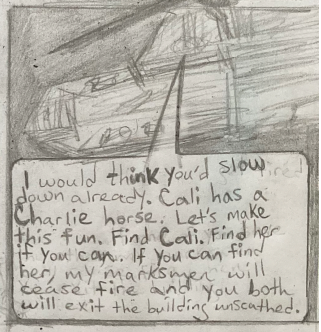 I would think you'd slow
down already. Cali has a
Charlie horse. Let's make
this fun. Find Cali. Find her
if you can. If you can find
her, my marksmen will
cease fire and you both
will exit the building unscathed.